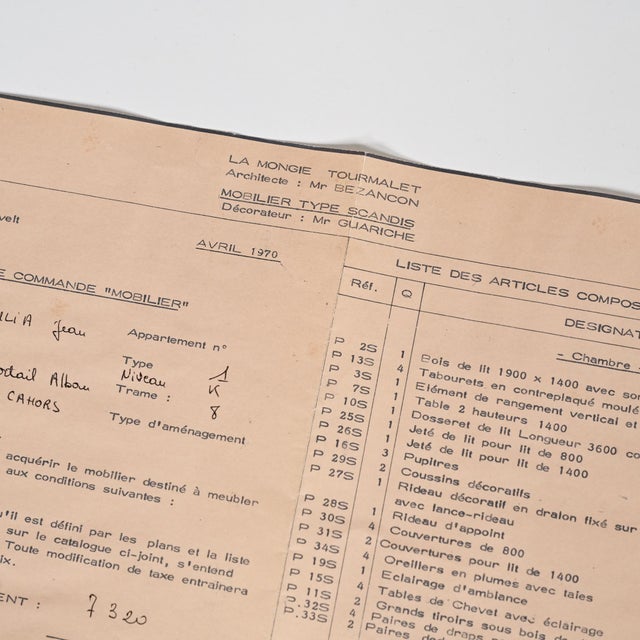 LA MONGIE TOURMALET
Architecte : Mr BEZANCON
MOBILIER TYPE SCANDIS
Décorateur : Mr GUARICHE
velt
AVRIL 1970
E COMMANDE "MOBILIER"
LIA Jean
Appartement n°
Type 1
Niveau K
Trame : 8
CAHORS
Type d'aménagement
acquérir le mobilier destiné à meubler
aux conditions suivantes :
u'il est défini par les plans et la liste
sur le catalogue ci-joint, s'entend
Toute modification de taxe entrainera
ix.
ENT : 7320
LISTE DES ARTICLES COMPOS
Réf. Q DESIGNAT
- Chambre -
P 2S 1 Bois de lit 1900 x 1400 avec som
P 13S 4 Tabourets en contreplaqué moulé
P 3S 1 Elément de rangement vertical et
P 7S 1 Table 2 hauteurs 1400
P 10S 1 Dosseret de lit Longueur 3600 co
P 25S 1 Jeté de lit pour lit de 800
P 26S 1 Jeté de lit pour lit de 1400
P 16S 3 Pupitres
P 29S 2 Coussins décoratifs
P 27S 1 Rideau décoratif en dralon fixé sur
avec lance-rideau
P 28S 1 Rideau d'appoint
P 30S 4 Couvertures de 800
P 31S 2 Couvertures pour lit de 1400
P 34S 4 Oreillers en plumes avec taies
P 19S 1 Eclairage d'ambiance
P 15S 4 Tables de Chevet avec éclairage
P 11S 2 Grands tiroirs sous bois de
P.32S 4 Paires de draps
P.33S 2 Paires